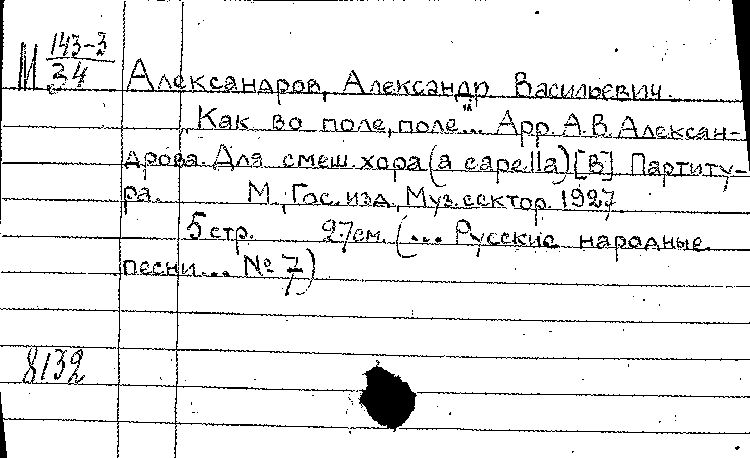 М 143-3
34
Александров, Александр Васильевич.
„Как во поле, поле..." Арр. А.В. Алексан-
дрова. Для смеш. хора (a capella) [В] Партиту-
ра. М., Гос. изд., Муз. сектор. 1927.
5 стр. 27 см. (... Русские народные
песни... № 7)
8132